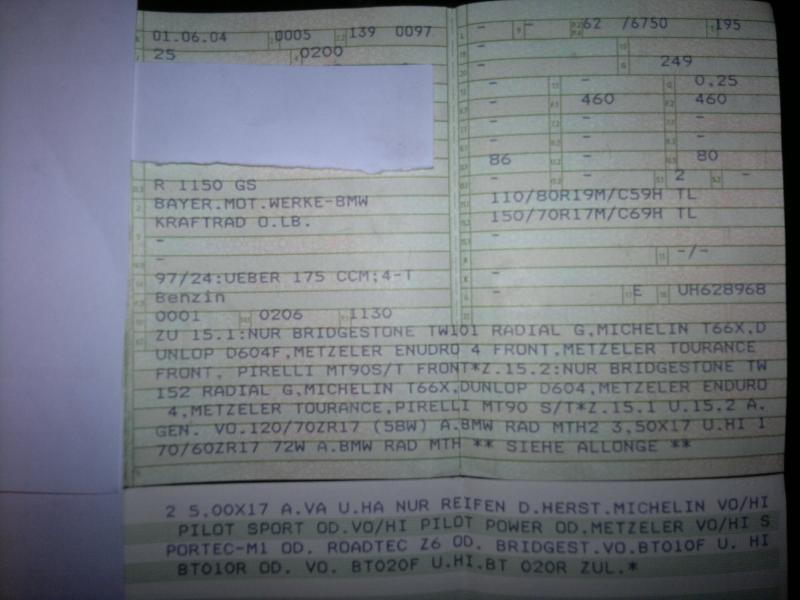 01.06.04 0005 139 0097
- - 62 /6750 195
25 0200
- 249
- - 0,25
- 460 460
- - -
- - -
86 - 80
- - 2 -
R 1150 GS
BAYER.MOT.WERKE-BMW
KRAFTRAD O.LB.
-
-
97/24:UEBER 175 CCM;4-T
Benzin
0001 0206 1130
110/80R19M/C59H TL
150/70R17M/C69H TL
-
- -/-
-
- E UH628968
ZU 15.1:NUR BRIDGESTONE TW101 RADIAL G,MICHELIN T66X,D
UNLOP D604F,METZELER ENUDRO 4 FRONT,METZELER TOURANCE
FRONT, PIRELLI MT90S/T FRONT*Z.15.2:NUR BRIDGESTONE TW
152 RADIAL G,MICHELIN T66X,DUNLOP D604,METZELER ENDURO
4,METZELER TOURANCE,PIRELLI MT90 S/T*Z.15.1 U.15.2 A.
GEN. VO.120/70ZR17 (58W) A.BMW RAD MTH2 3,50X17 U.HI 1
70/60ZR17 72W A.BMW RAD MTH ** SIEHE ALLONGE **
2 5.00X17 A.VA U.HA NUR REIFEN D.HERST.MICHELIN VO/HI
PILOT SPORT OD.VO/HI PILOT POWER OD.METZELER VO/HI S
PORTEC-M1 OD. ROADTEC Z6 OD. BRIDGEST.VO.BT010F U. HI
BT010R OD. VO. BT020F U.HI.BT 020R ZUL.*